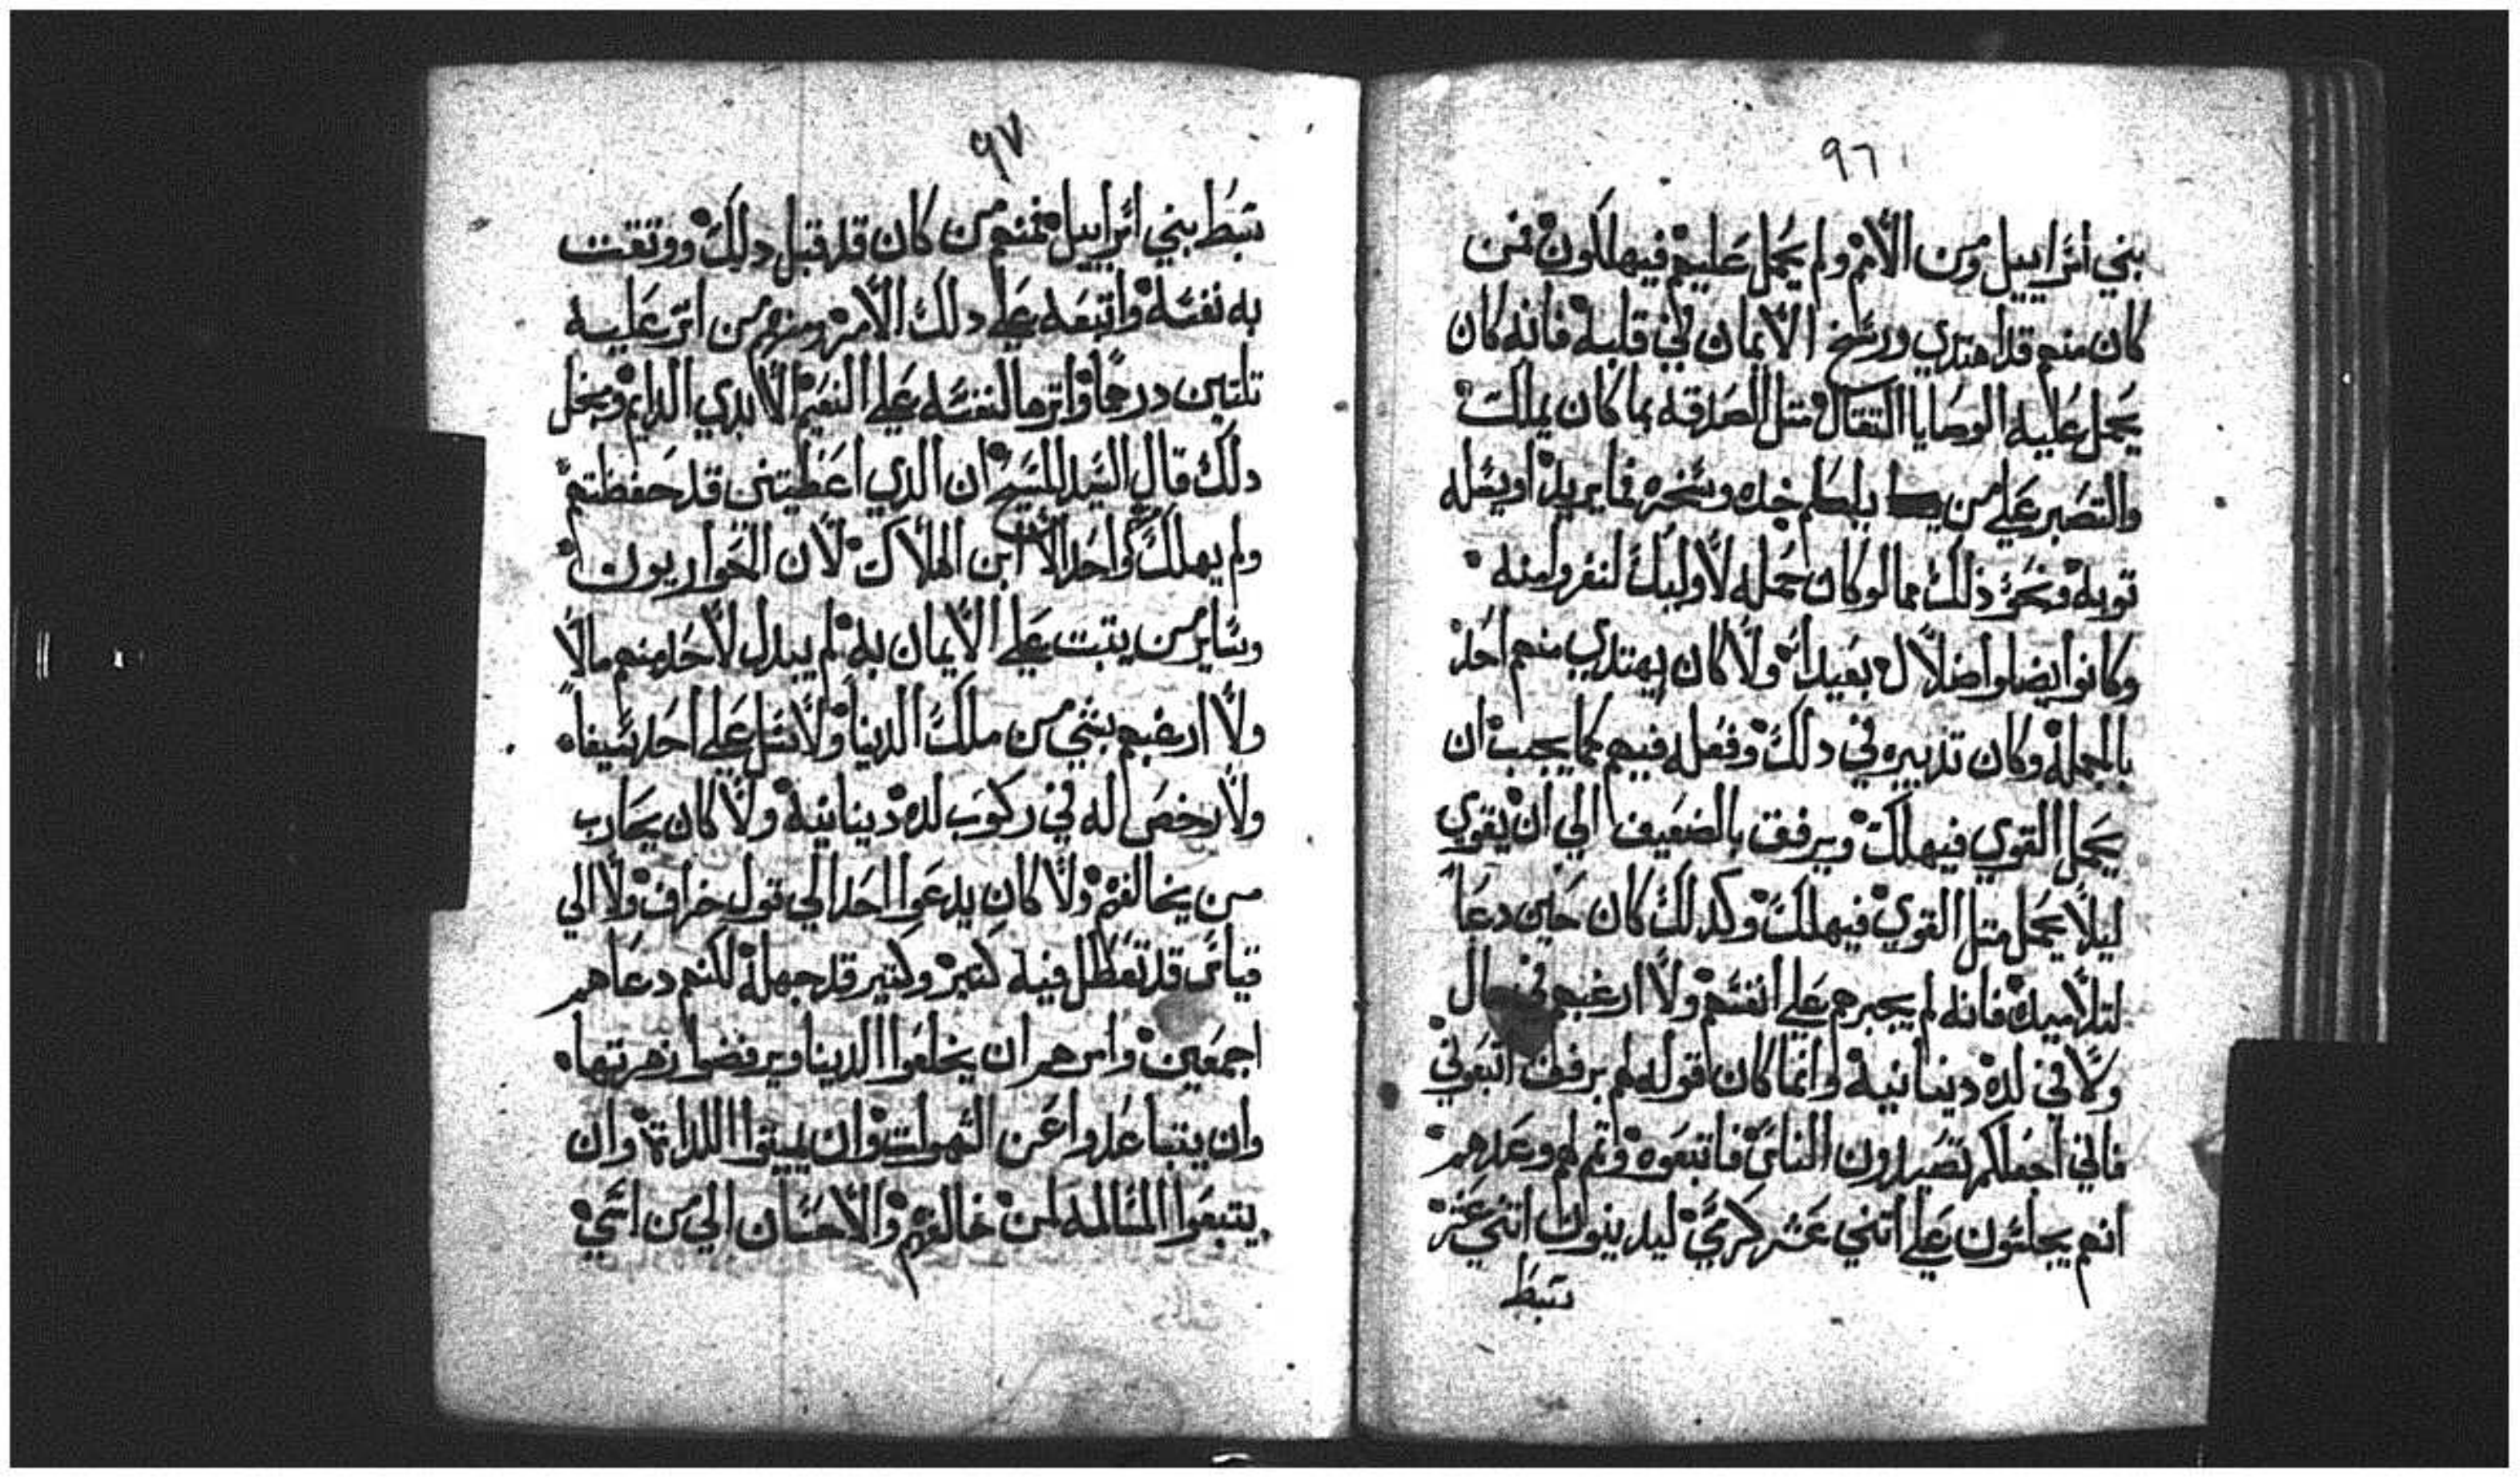 ٩٦
بني اسراييل ومن الأمم ولم يحمل عليهم فيهلكون فمن
كان منهم قد اهتدي ورسخ الأيمان في قلبه فانه كان
يحمل عليه الوصايا التقال متل الصدقه بما كان يملك
والتصبر على من يلطم خده وسخره فايريد او يسله
توبه ونحو ذلك مما لو كان حمله لأوليك لنفروا منه
وكانوا ايضا واضلال بعيدا ولا كان يهتدي منهم احد
بالجمله وكان تدبيره في دلك وفعله فيهم كما يجب ان
يحمل القوي فيهلك ويرفق بالضعيف الي ان يقوي
ليلا يحمل متل القوي فيهلك وكدلك كان حين دعا
لتلاميده فانه لم يجبرهم على انفسهم ولا ارغبهم في مال
ولا في لده دينانية وانما كان قوله لهم برفق اتبعوني
فاني اجعلكم تصيدون الناس فاتبعوه وتم لهم وعدهم
انهم يجلسون على اتني عشر كرسي ليدينون اتني عشر
سبط
٩٧
سبط بني اسراييل فمنهم من كان قد قبل دلك ووتقت
به نفسه واتبعه على دلك الأمر ومنهم من اتر عليه
تلتين درهما واترها لنفسه على النعيم الأبدي الدايم ومجل
دلك قال السيد المسيح ان الدي اعطيتني قد حفظتهم
ولم يهلك واحدا الا ابن الهلاك لأن الحواريون
وساير من يتبت على الأيمان به لم يبدل لأحد منهم مالا
ولا ارغبهم بشي من ملك الدينا ولا سل على احد سيفا
ولا رخص له في ركوب لده دينانية ولا كان يحارب
من يخالفهم ولا كان يدعوا احدا الي قول خراف ولا الي
قياس قد تعطل فيه كتير وكتير قد جهله لكنهم دعاهم
اجمعين وامرهم ان يخلعوا الدينا ويرفضوا زهرتها
وان يتباعدوا عن الشهوات وان يميتوا اللداة وان
يتبعوا المسالمه لمن خالفهم والأحسان الي من اسي